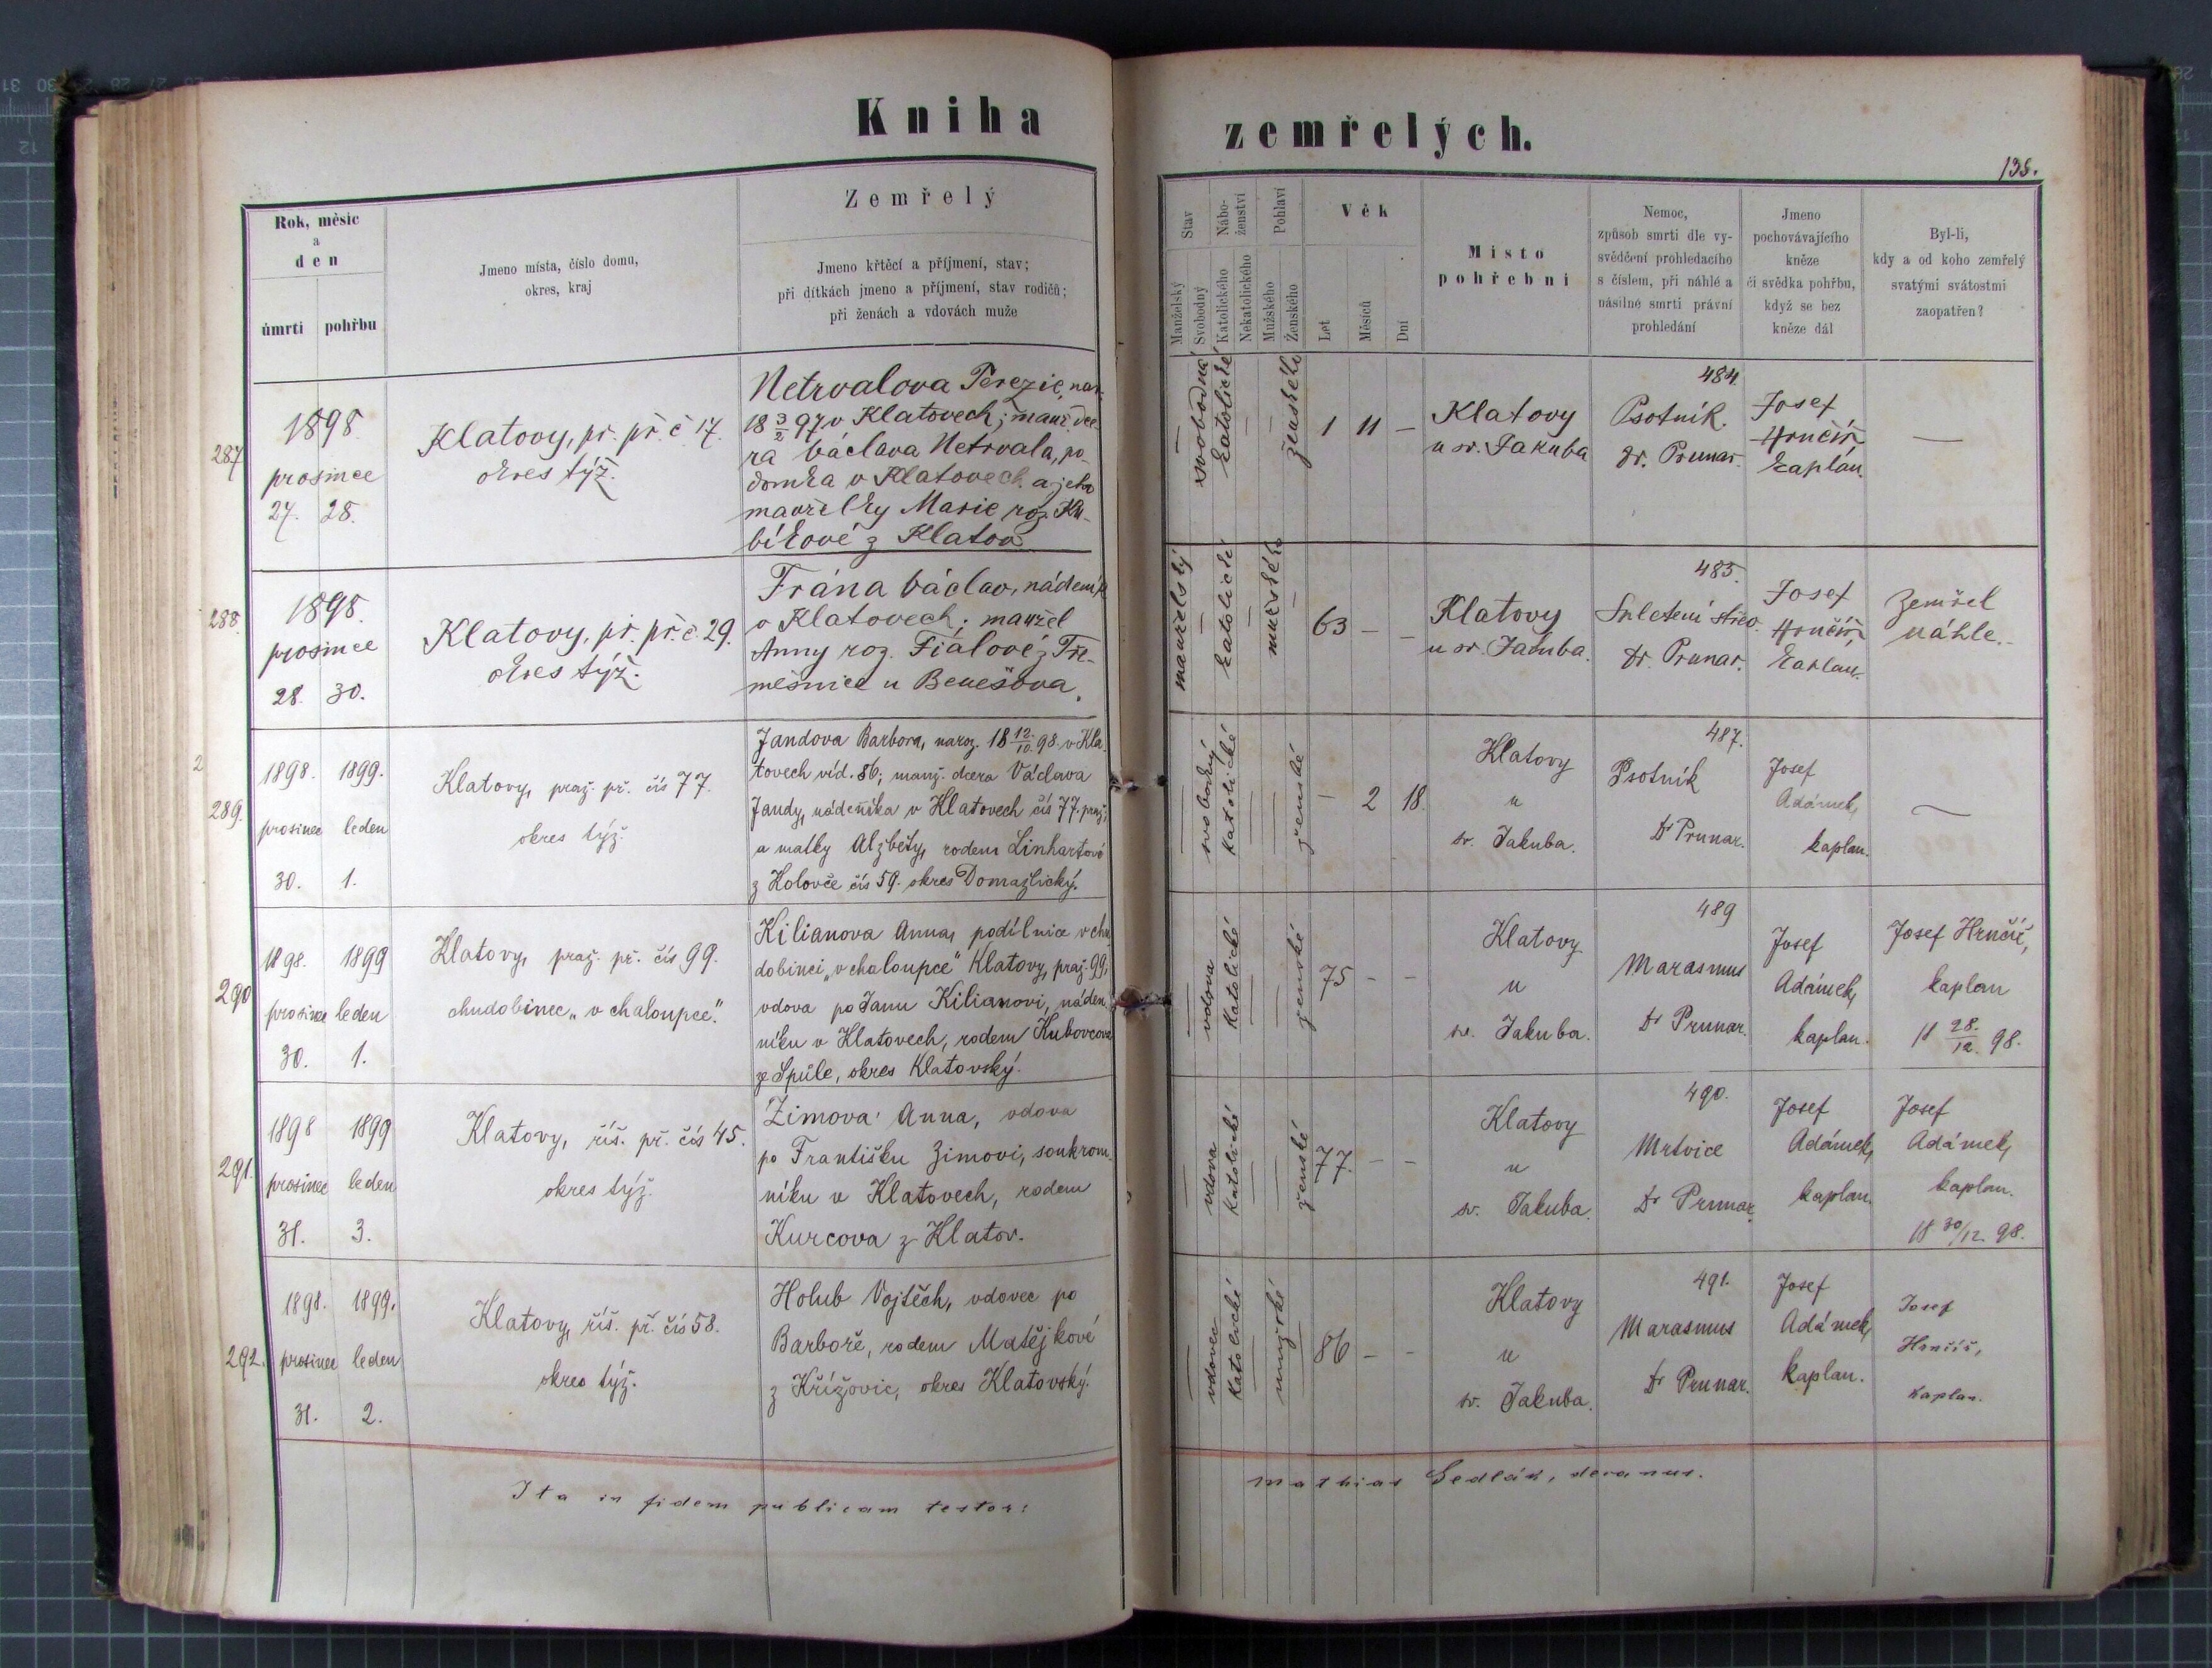 Kniha
zemřelých.
135.
Rok, měsíc
a
den
úmrtí
pohřbu
Jmeno místa, číslo domu,
okres, kraj
Zemřelý
Jmeno křtěcí a příjmení, stav;
při dítkách jmeno a příjmení, stav rodičů;
při ženách a vdovách muže
Stav
Manželský
Svobodný
Nábo-
ženství
Katolického
Nekatolického
Pohlaví
Mužského
Ženského
Věk
Let
Měsíců
Dní
Místo
pohřební
Nemoc,
způsob smrti dle vy-
svědčení prohledacího
s číslem, při náhlé a
násilné smrti právní
prohledání
Jmeno
pochovávajícího
kněze
či svědka pohřbu,
když se bez
kněze dál
Byl-li,
kdy a od koho zemřelý
svatými svátostmi
zaopatřen?
287
1898
prosince
27. 28.
Klatovy, pr. př. č 17.
okres týž.
Netrvalova Terezie, nar.
18 3/2 97 v Klatovech; manž. dce-
ra Václava Netrvala, po-
domka v Klatovech a jeho
manželky Marie roz. Ku-
bíkové z Klatov
svobodná
katolické
ženského
1 11 —
Klatovy
u sv. Jakuba
484.
Psotník.
Dr. Prunar.
Josef
Hrnčíř,
kaplan.
—
288.
1898.
prosince
28. 30.
Klatovy, pr. př. č. 29.
okres týž.
Frána Václav, nádeník
v Klatovech; manžel
Anny roz. Fialové z Tře-
měšnice u Benešova.
manželský
katolické
mužského
63 — —
Klatovy
u sv. Jakuba.
485.
Spletení střev.
Dr. Prunar.
Josef
Hrnčíř,
kaplan.
Zemřel
náhle.
289.
1898. 1899.
prosinec leden
30. 1.
Klatovy, praž. př. čís 77.
okres týž.
Jandova Barbora, naroz. 18 12./10. 98. v Kla-
tovech víd. 86; manž. dcera Václava
Jandy, nádeníka v Klatovech čís 77. praž;
a matky Alžběty, rodem Linhartové
z Koloveče čís 59. okres Domažlický.
svobodný
katolické
ženské
— 2 18.
Klatovy
u
sv. Jakuba.
487.
Psotník
Dr Prunar.
Josef
Adámek,
kaplan.
—
290
1898. 1899
prosinec leden
30. 1.
Klatovy, praž. př. čís 99.
chudobinec „v chaloupce“.
Kilianova Anna, podílnice v chu-
dobinci „v chaloupce“ Klatovy, praž. 99;
vdova po Janu Kilianovi, náden-
níku v Klatovech, rodem Kubovcova
ze Spůle, okres Klatovský.
vdova
katolické
ženské
75 — —
Klatovy
u
sv. Jakuba.
489
Marasmus
Dr Prunar.
Josef
Adámek,
kaplan.
Josef Hrnčíř,
kaplan
18 28./12. 98.
291.
1898 1899
prosinec leden
31. 3.
Klatovy, říš. př. čís 45.
okres týž.
Zimova Anna, vdova
po Františku Zimovi, soukrom-
níku v Klatovech, rodem
Kurcova z Klatov.
vdova
katolické
ženské
77. — —
Klatovy
u
sv. Jakuba.
490.
Mrtvice
Dr Prunar.
Josef
Adámek,
kaplan.
Josef
Adámek,
kaplan.
18 30/12. 98.
292.
1898. 1899.
prosinec leden
31. 2.
Klatovy, říš. př. čís 58.
okres týž.
Holub Vojtěch, vdovec po
Barboře, rodem Matějkové
z Křížovic, okres Klatovský.
vdovec
katolické
mužské
86 — —
Klatovy
u
sv. Jakuba.
491.
Marasmus
Dr Prunar.
Josef
Adámek,
kaplan.
Josef
Hrnčíř,
kaplan.
Ita in fidem publicam testor:
Mathias Sedlák, decanus.